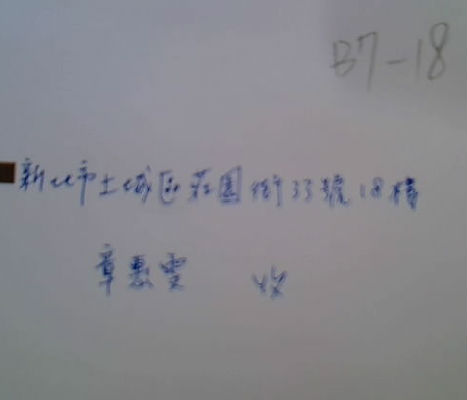 B7-18
新北市土城区莊園街33號18樓
章惠雯 收